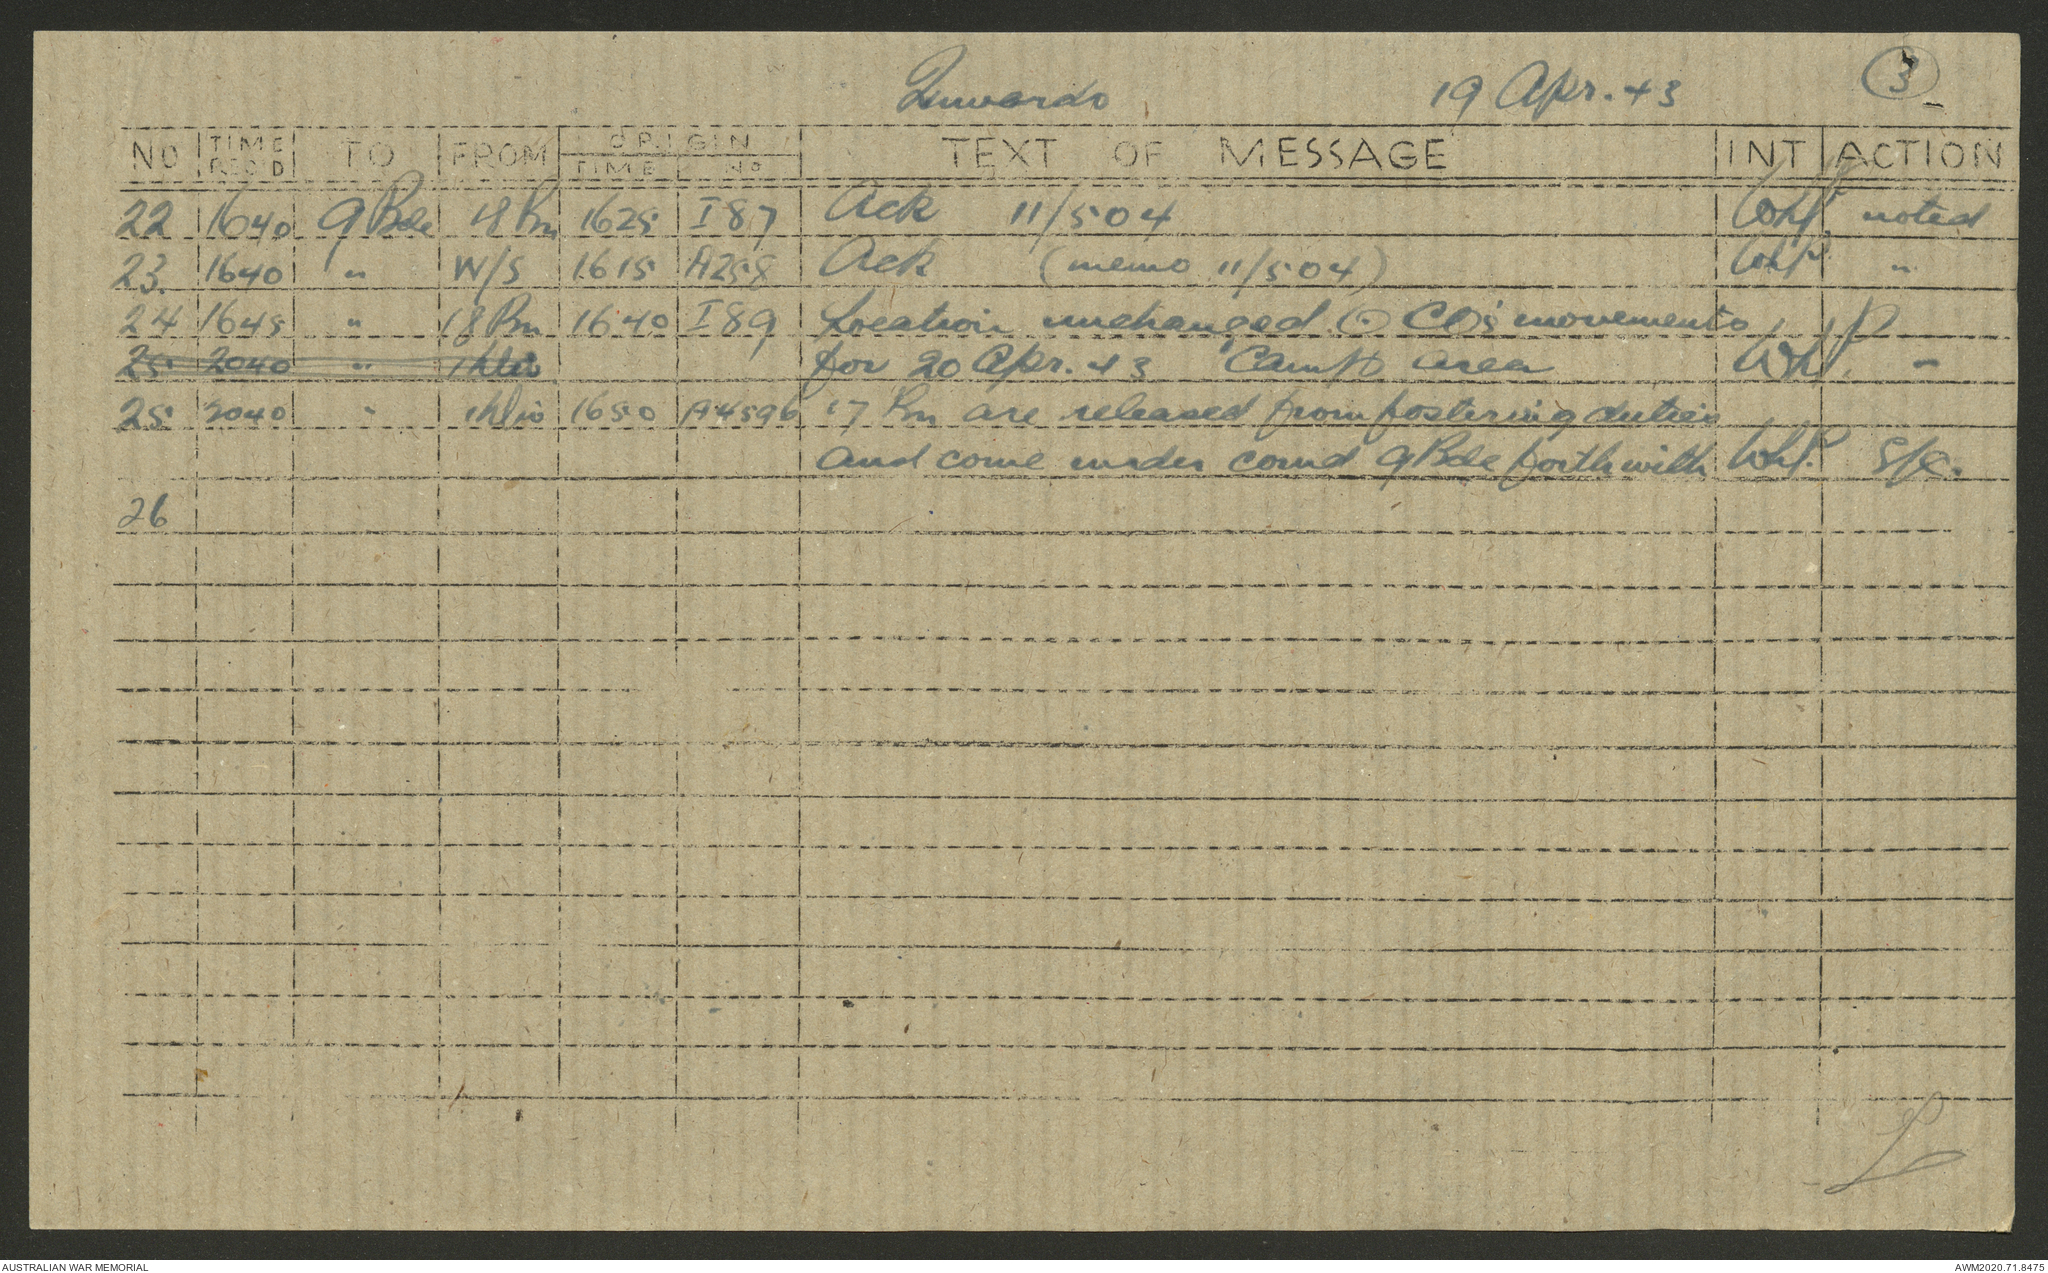 Inwards 19 Apr. 43 3
NO TIME REC'D TO FROM ORIGIN TIME NO TEXT OF MESSAGE INT ACTION
22 1640 9 Bde 18 Bn 1625 I87 Ack 11/504 WhP noted
23. 1640 " W/S 1615 A258 Ack (memo 11/504) WhP "
24 1645 " 18 Bn 1640 I89 Location unchanged. ⊙ CO's movements
25 2040 " 1 Div for 20 Apr. 43 Camp area WhP. "
25 2040 " 1 Div 1650 A4596 17 Bn are released from fostering duties
and come under comd 9 Bde forthwith WhP.
26
AUSTRALIAN WAR MEMORIAL AWM2020.71.8475